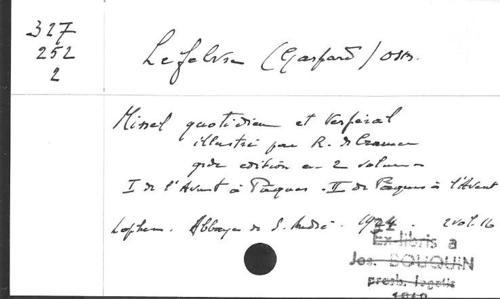 327
252
2
Lefebvre (Gaspard) OSB.
Missel quotidien et Vespéral
illustré par R. de Cramer
gde édition en 2 volumes
I de l'Avent à Pâques . II de Pâques à l'Avent
Lophem . Abbaye de S. André . 1924 . 2 vol. 16
Ex-libris a
Jos. BOUQUIN
presb. legatis